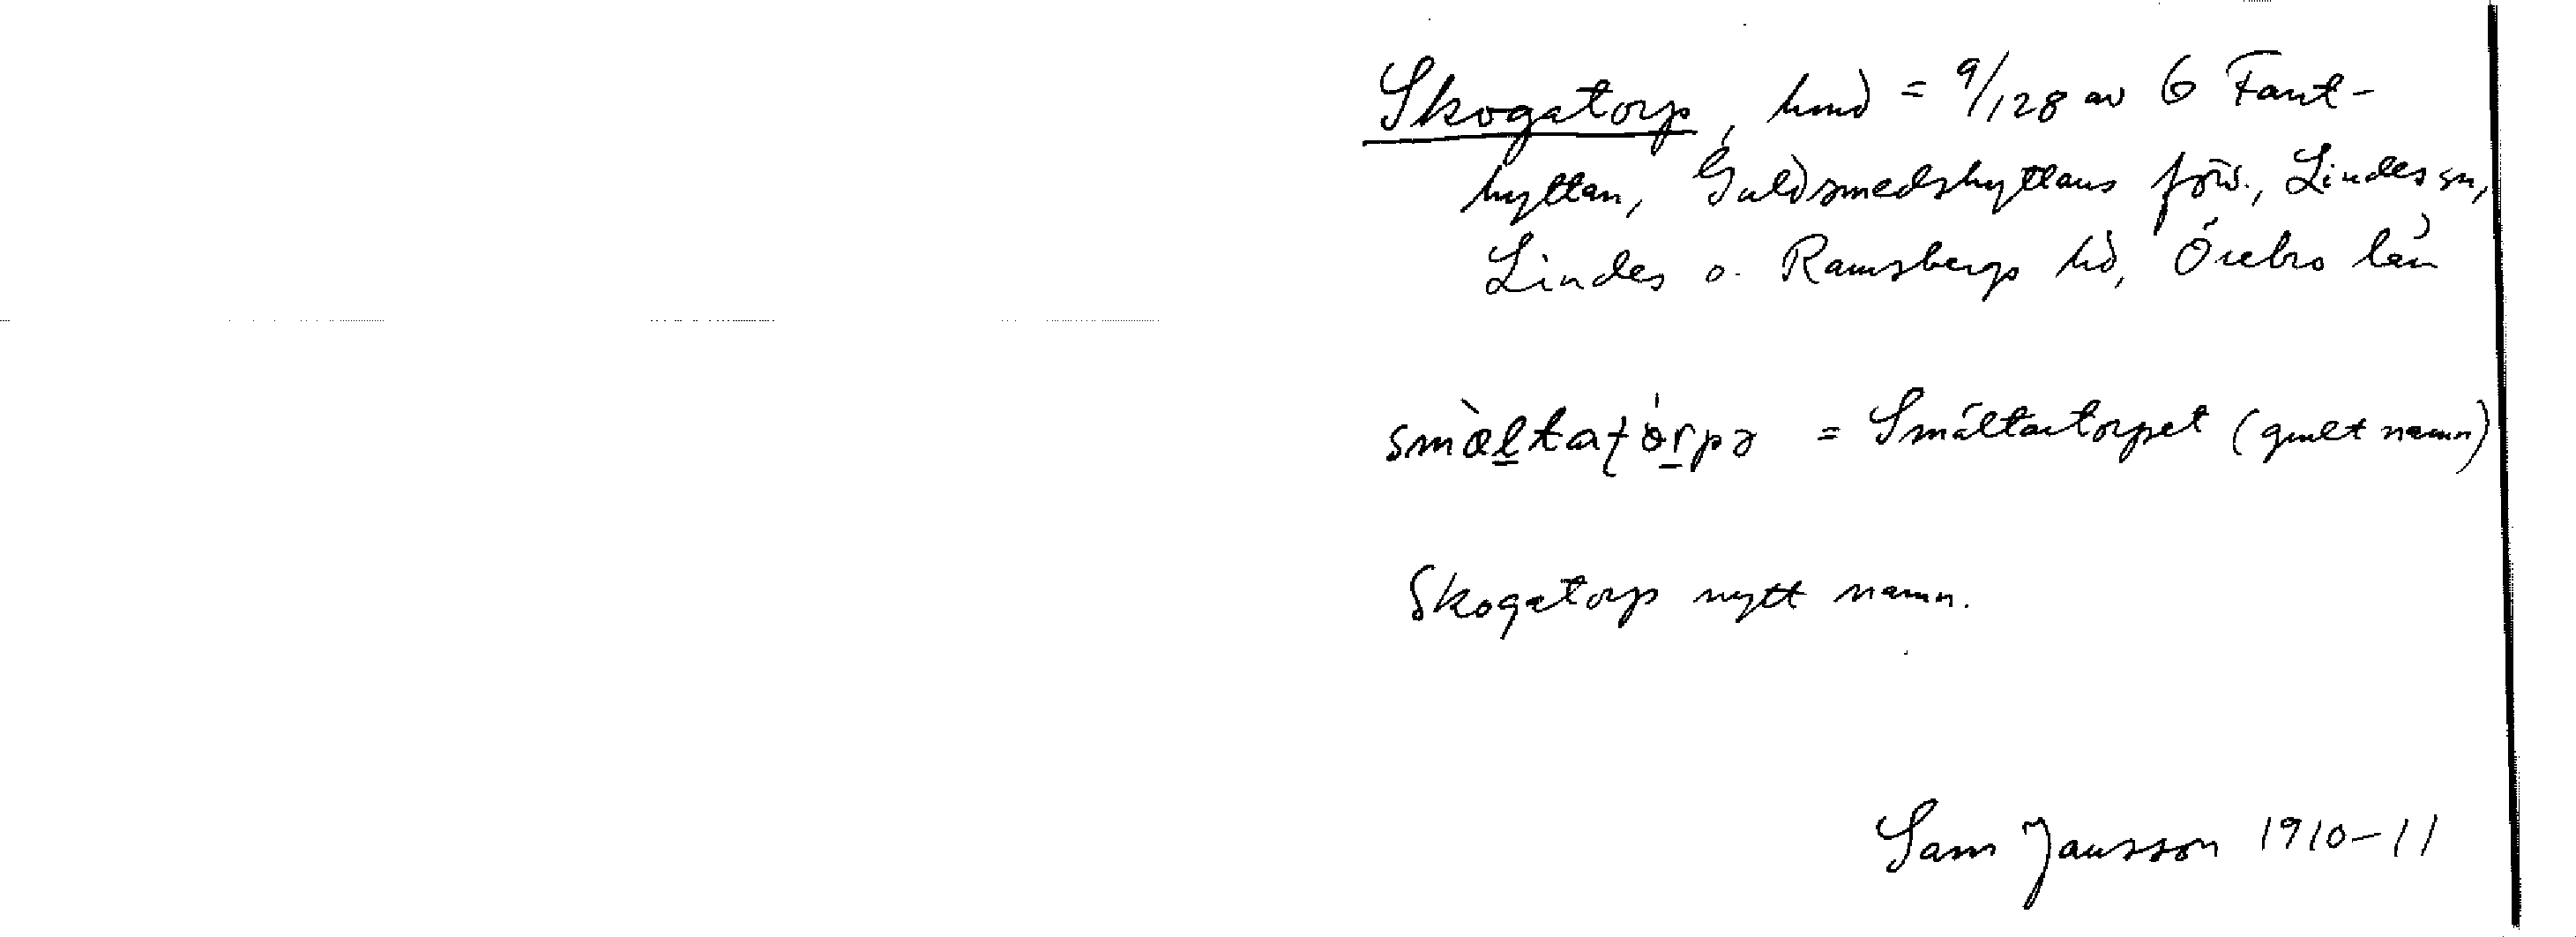 Skogatorp, hmd = 9/128 av 6 Fant-
hyttan, Guldsmedshyttans förs., Lindes sn,
Lindes o. Ramsbergs hd, Örebro län
smæ̀ltatórpə = Smältartorpet (gmlt namn)
Skogatorp nytt namn.
Sam Jansson 1910-11